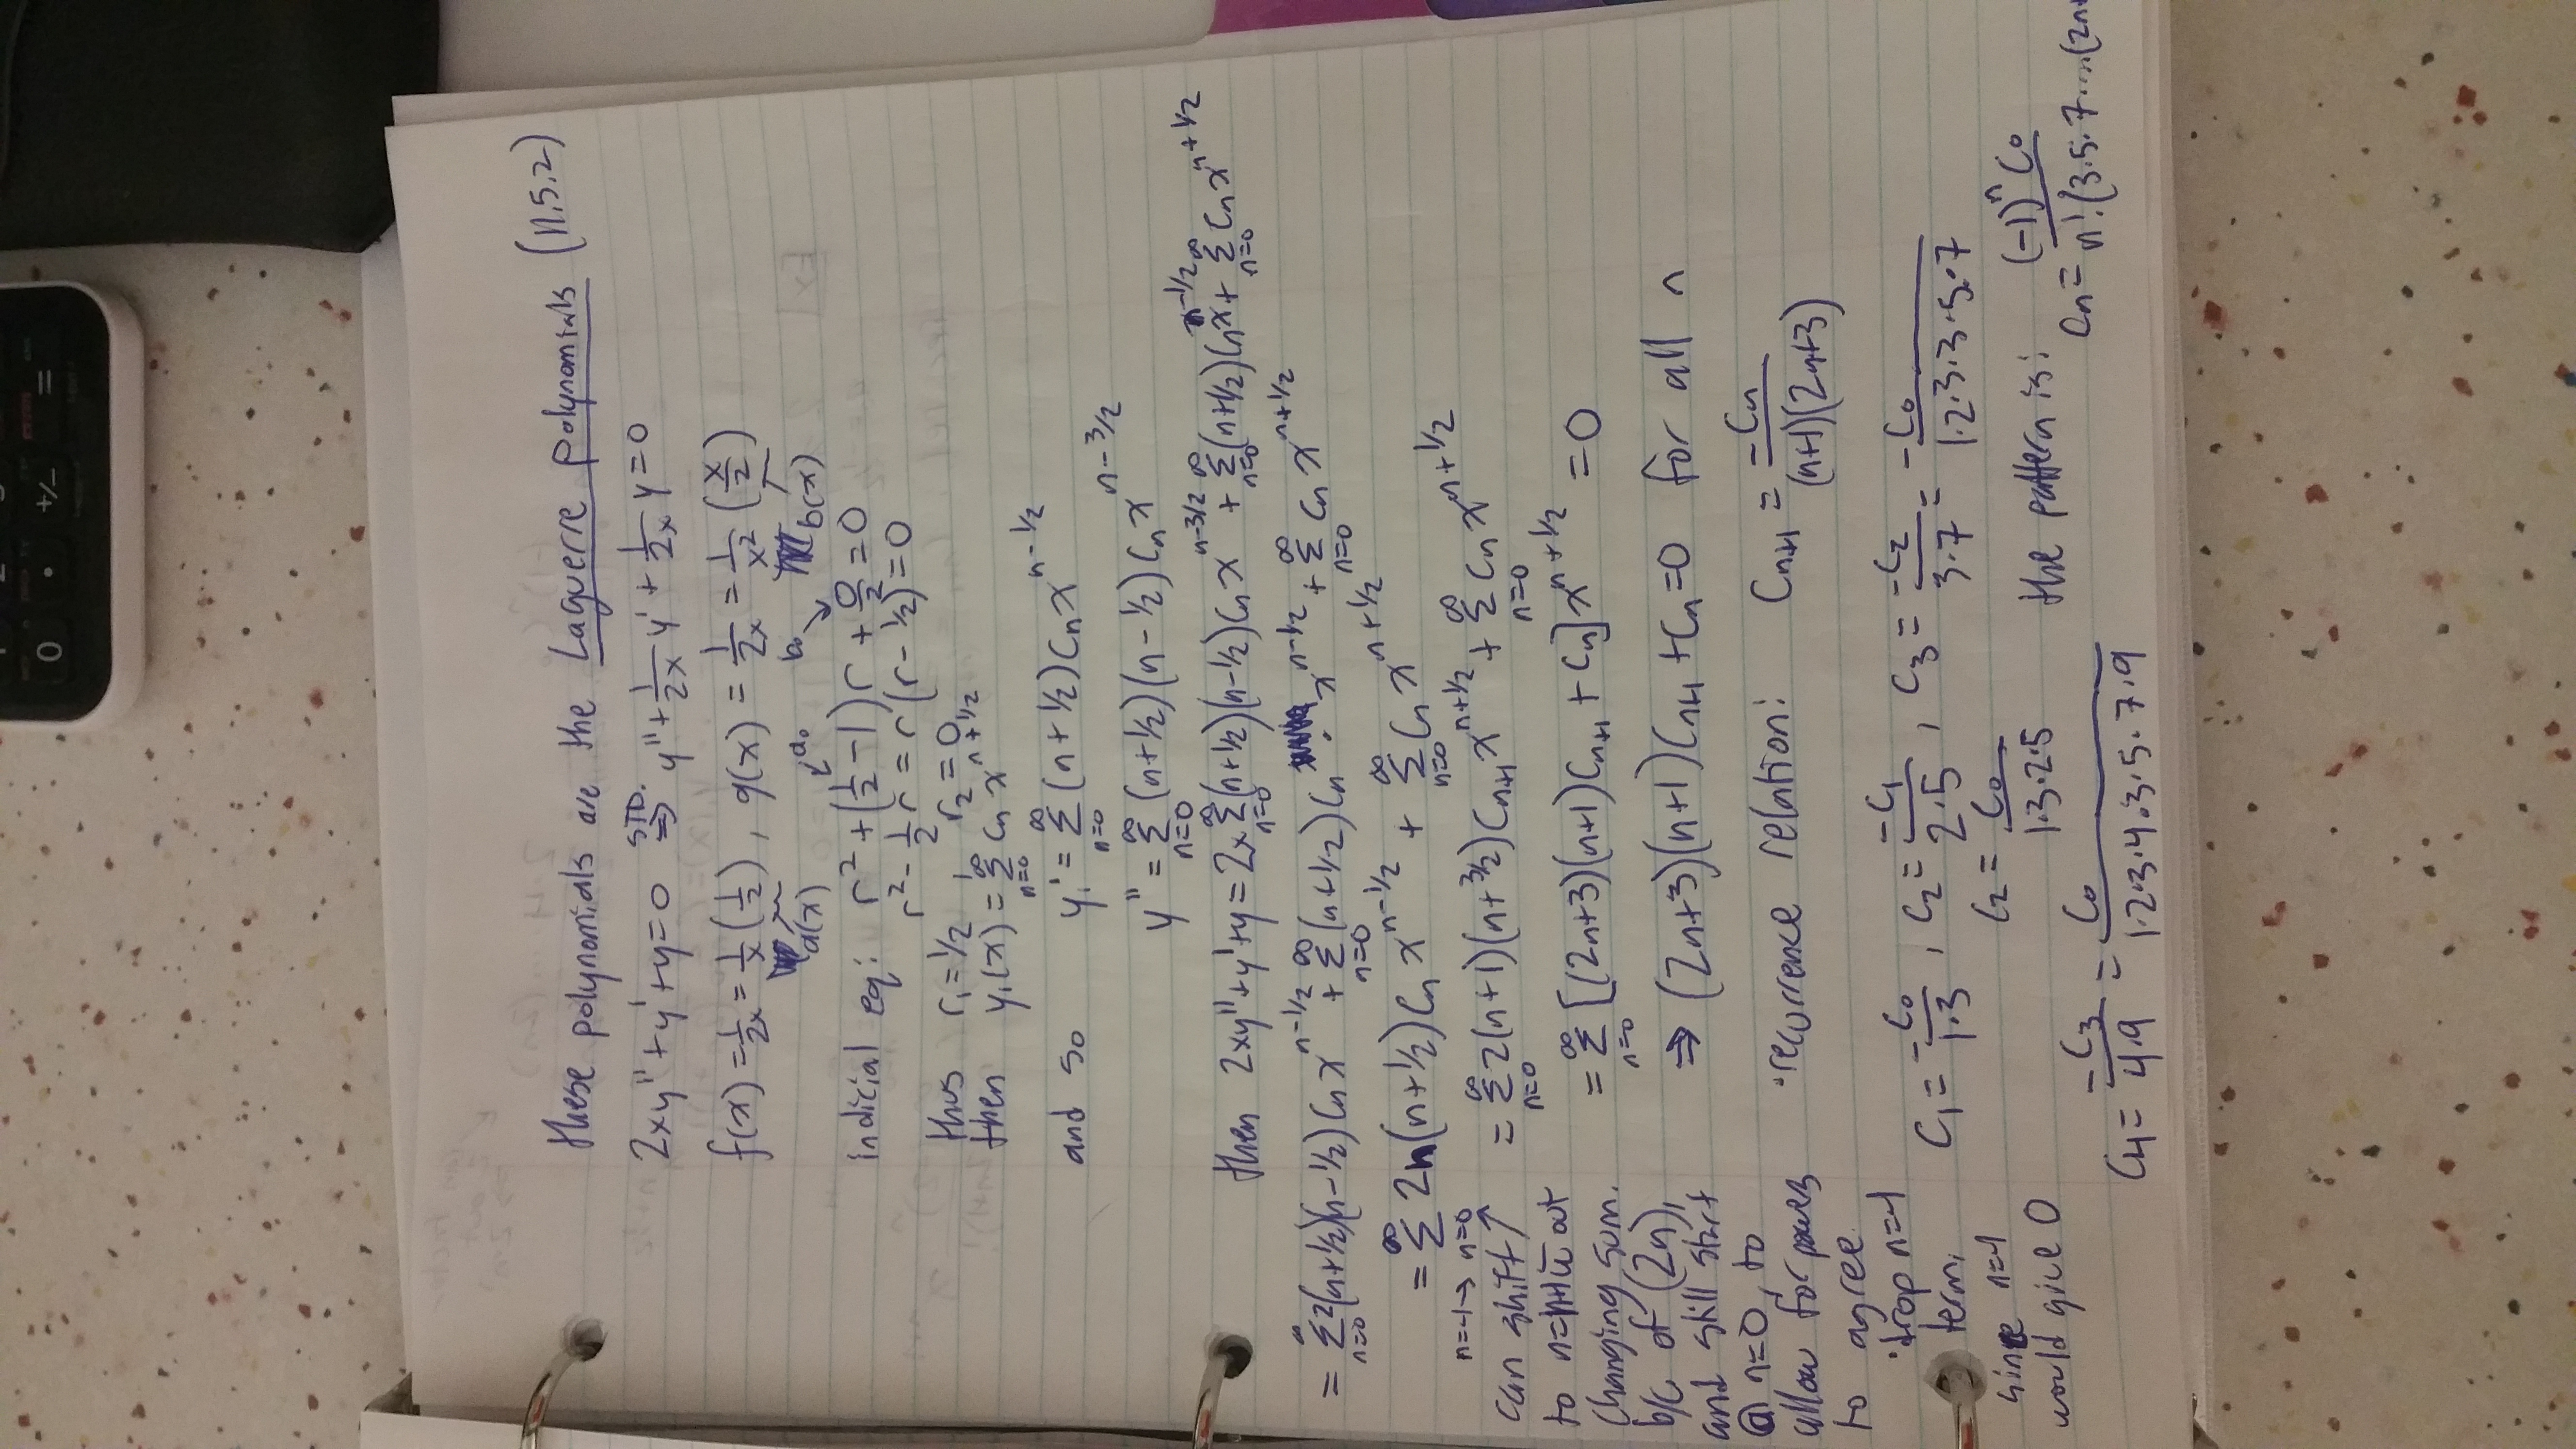 these polynomials are the Laguerre polynomials (11.5.2)
2xy''+y'+y=0 STD. ⇒ y''+1/2x y'+1/2x y=0
f(x)=1/2x=1/x(1/2), q(x)=1/2x=1/x²(x/2)
a(x) b(x)
a₀ b₀
indicial eq: r²+(1/2-1)r+0/2=0
r²-1/2r=r(r-1/2)=0
thus r₁=1/2 r₂=0
then y₁(x)=∑_{n=0}^∞ Cₙx^{n+1/2}
and so y₁'=∑_{n=0}^∞(n+1/2)Cₙx^{n-1/2}
y''=∑_{n=0}^∞(n+1/2)(n-1/2)Cₙx^{n-3/2}
then 2xy''+y'+y=2x∑_{n=0}^∞(n+1/2)(n-1/2)Cₙx^{n-3/2}+∑_{n=0}^∞(n+1/2)Cₙx^{n-1/2}+∑_{n=0}^∞Cₙx^{n+1/2}
=∑_{n=0}^∞2(n+1/2)(n-1/2)Cₙx^{n-1/2}+∑_{n=0}^∞(n+1/2)Cₙx^{n-1/2}+∑_{n=0}^∞Cₙx^{n+1/2}
=∑_{n=0}^∞2n(n+1/2)Cₙx^{n-1/2}+∑_{n=0}^∞Cₙx^{n+1/2}
n=-1→n=0
can shift ↗
to n=n+1 w/out
changing sum.
b/c of (2n),
and still start
@ n=0, to
allow for powers
to agree
·drop n=-1
term,
since n=-1
would give 0
=∑_{n=0}^∞2(n+1)(n+3/2)Cₙ₊₁x^{n+1/2}+∑_{n=0}^∞Cₙx^{n+1/2}
=∑_{n=0}^∞[(2n+3)(n+1)Cₙ₊₁+Cₙ]x^{n+1/2}=0
⇒(2n+3)(n+1)Cₙ₊₁+Cₙ=0 for all n
·recurrence relation: Cₙ₊₁=-Cₙ/(n+1)(2n+3)
C₁=-C₀/1·3, C₂=-C₁/2·5, C₃=-C₂/3·7=-C₀/1·2·3·3·5·7
C₂=C₀/1·3·2·5 the pattern is:
C₄=-C₃/4·9=C₀/1·2·3·4·3·5·7·9 Cₙ=(-1)ⁿC₀/n!(3·5·7·...(2n+